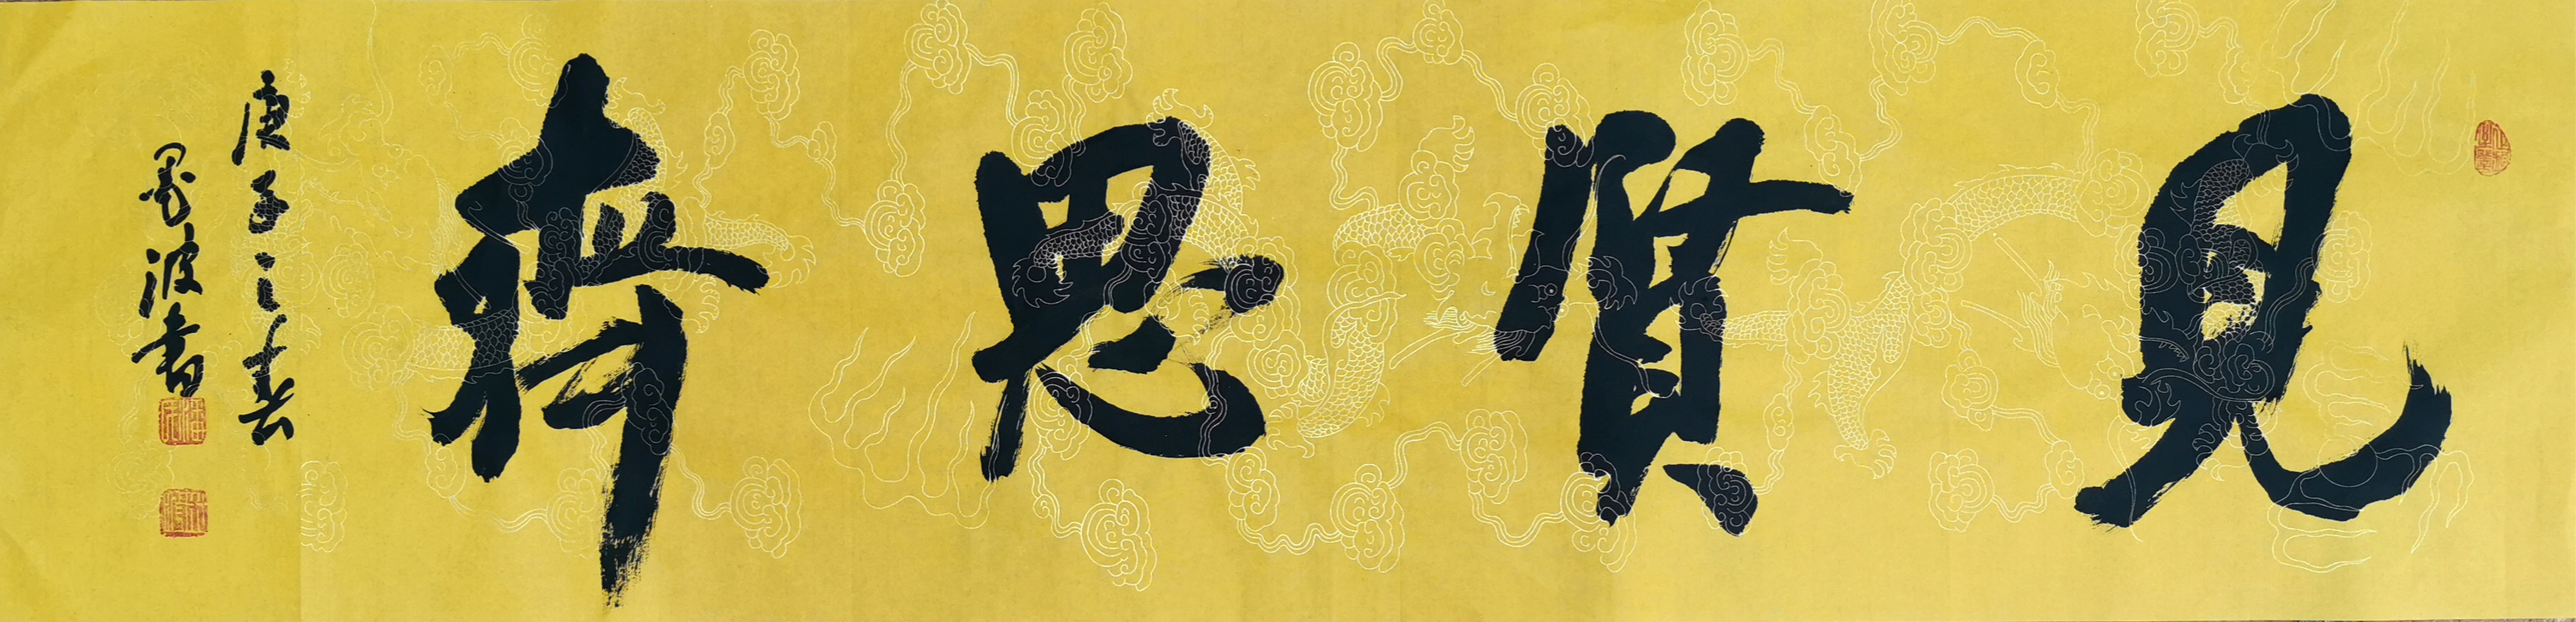 見賢思齊
庚子之春
墨波書